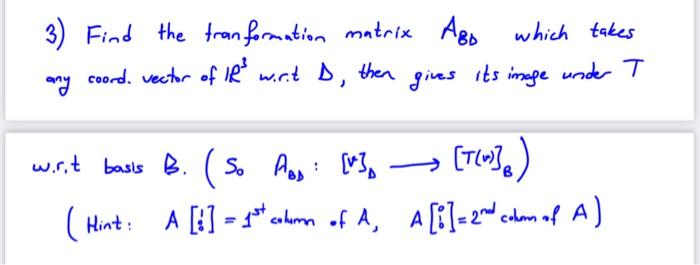 3) Find the tranformation matrix A_BD which takes
any coord. vector of ℝ³ w.r.t D, then gives its image under T
w.r.t basis B. ( So A_BD : [v]_D ⟶ [T(v)]_B )
( Hint: A [1 0 0] = 1st column of A, A [0 1 0] = 2nd colum of A )